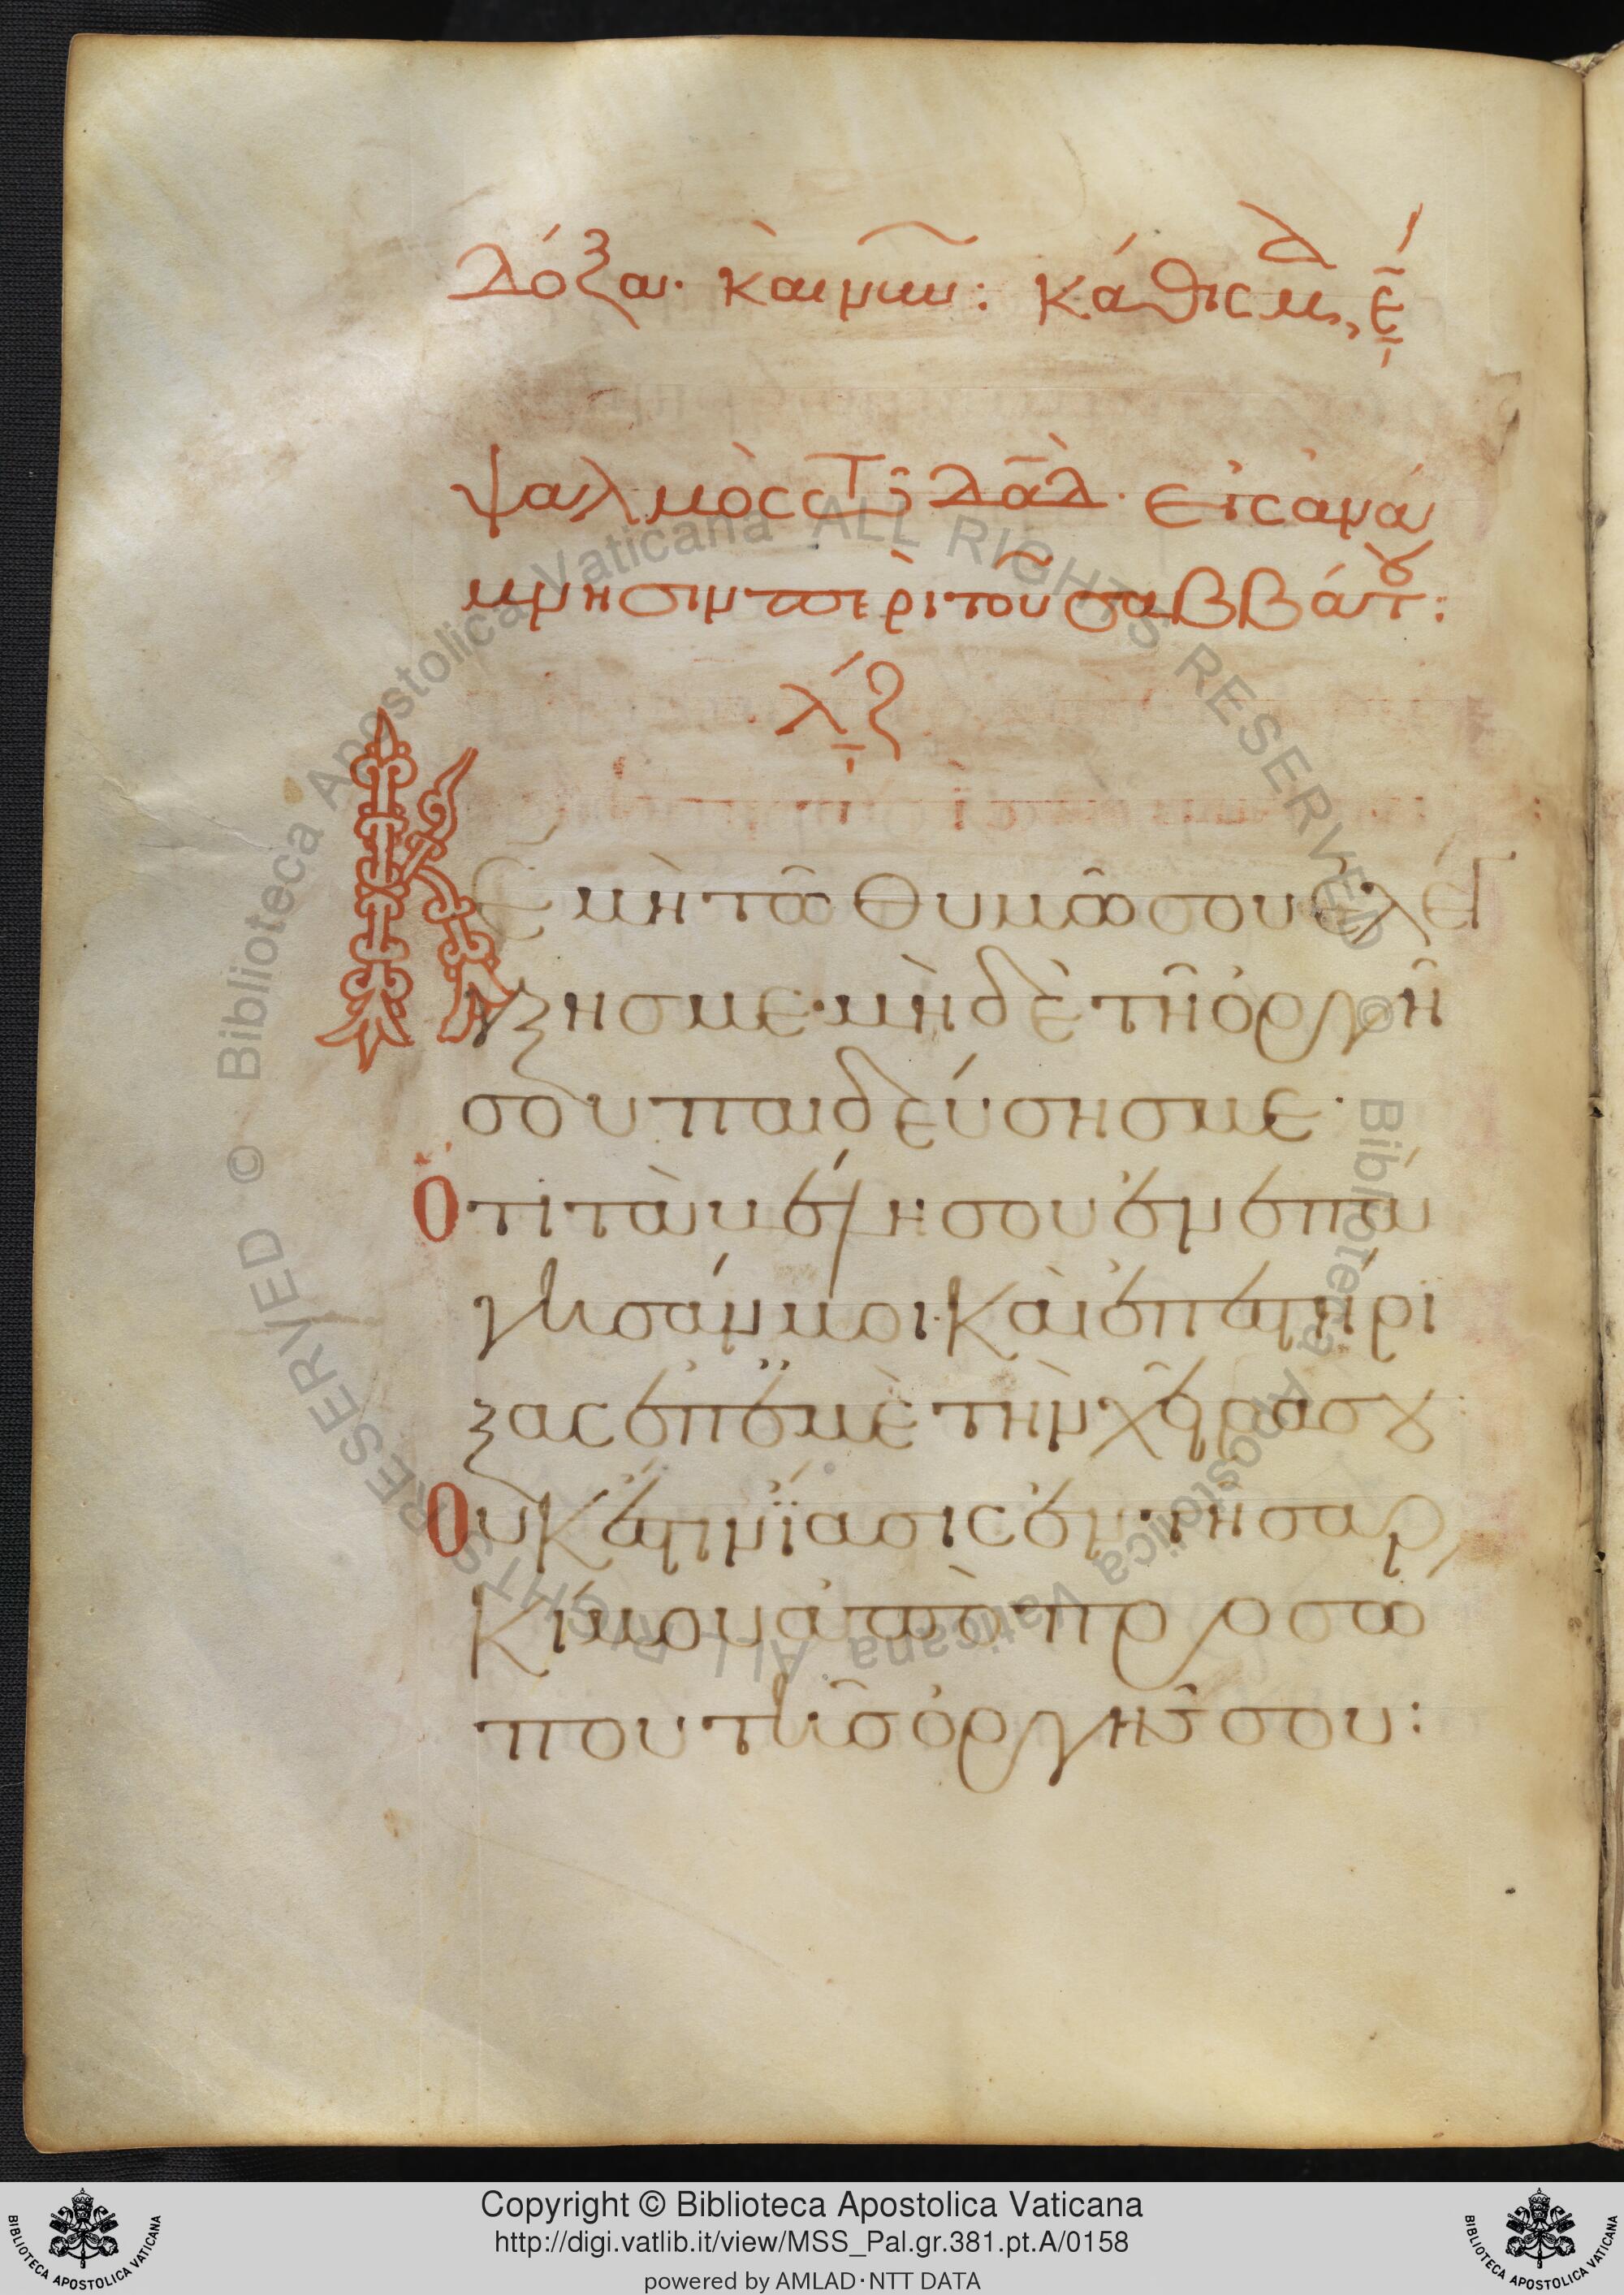 Δόξα· καὶ νῦν: κάθισμ, ε̄
ψαλμὸς τῶ δᾱδ· εἰς ἀνά
μνησιν περὶ τοῦ σαββάτου:
λζ
Κε μὴ τῶ θυμῶ σου ἐλέγ
ξης με· μηδὲ τῆ ὀργῆ
σου παιδεύσης με·
Ὅτι τὰ βέλη σου ἐνεπά
γησάν μοι· καὶ ἐπεστήρι
ξας ἐπ' ἐμὲ τὴν χεῖρα σου
Οὐκ ἔστιν ἴασις ἐν τῆ σαρ
κί μου ἀπὸ προσώ
που τῆς ὀργῆς σου:
© Biblioteca Apostolica Vaticana ALL RIGHTS RESERVED
© Biblioteca Apostolica Vaticana ALL RIGHTS RESERVED
Copyright © Biblioteca Apostolica Vaticana
http://digi.vatlib.it/view/MSS_Pal.gr.381.pt.A/0158
powered by AMLAD·NTT DATA
BIBLIOTECA APOSTOLICA VATICANA
BIBLIOTECA APOSTOLICA VATICANA